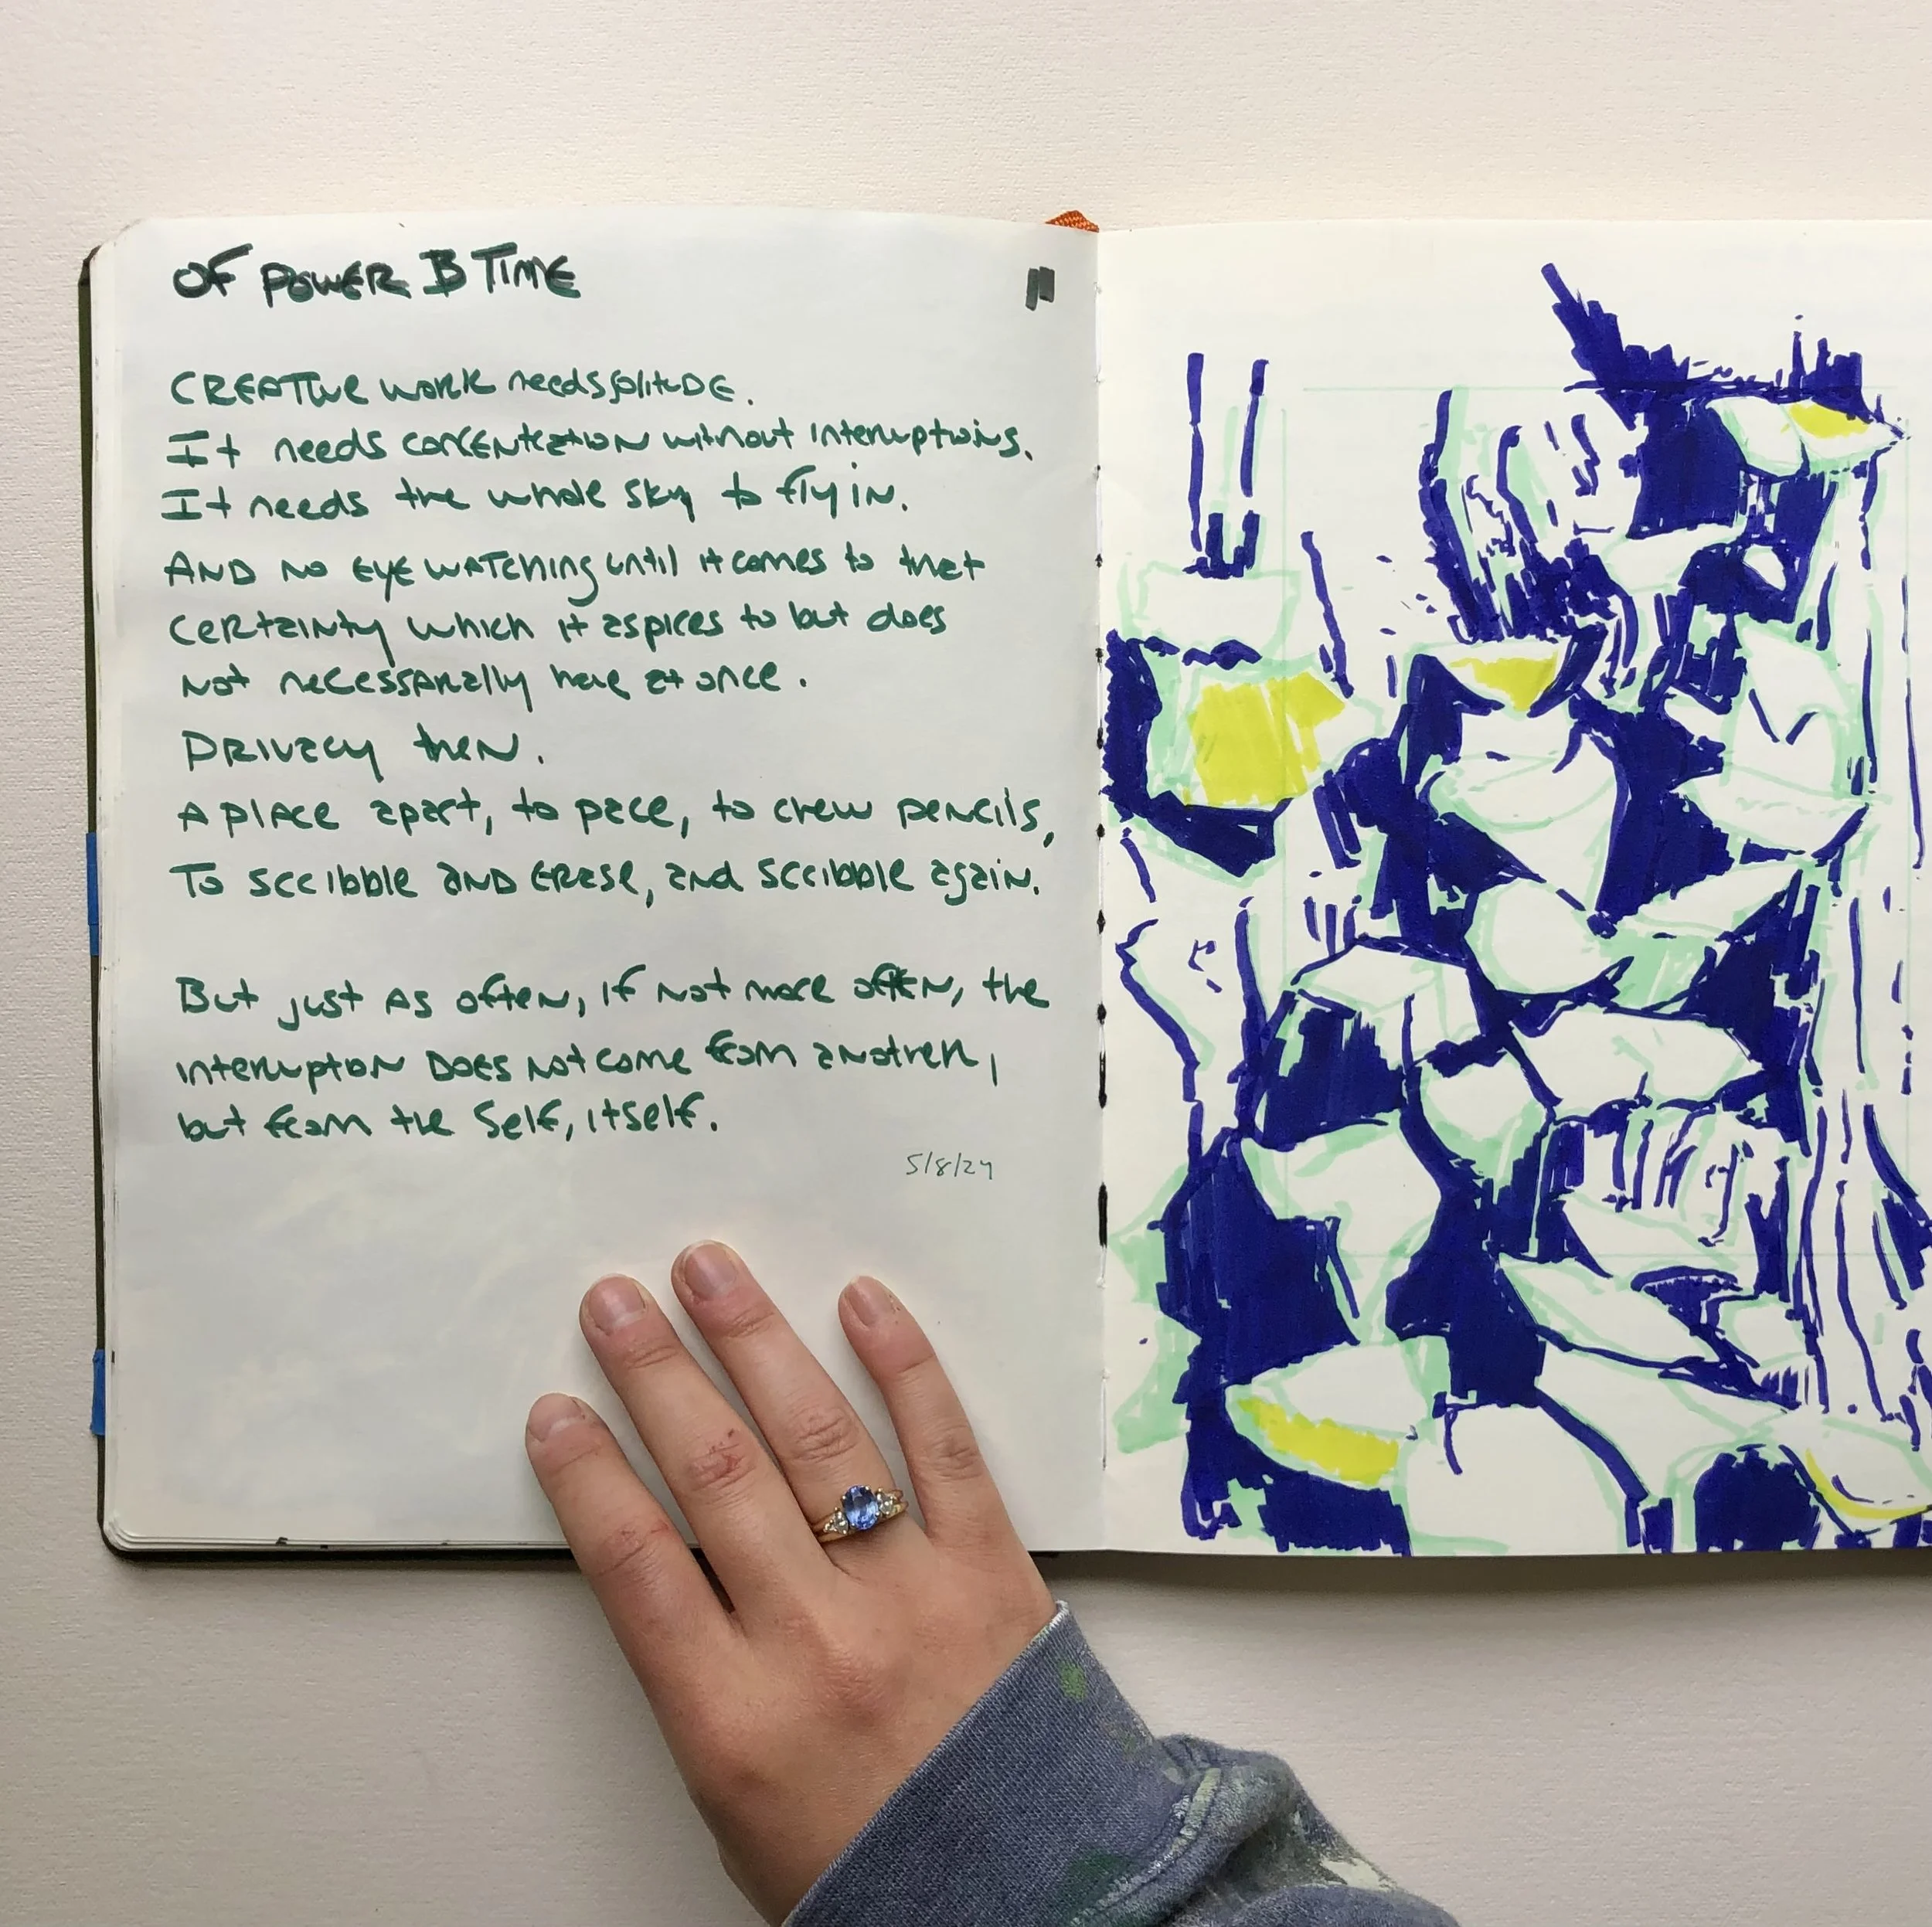 OF POWER & TIME
CREATIVE WORK needs solitUDE.
It needs concENtration without interruptions.
It needs the whole sky to fly in.
AND NO EYE WATCHING until it comes to that
certainty which it aspires to but does
Not necessarially have at once.
PRIVACY then.
A PlACE apart, to pace, to chew pencils,
To scribble AND ERASE, and scribble again.
But just AS often, if Not more often, the
interruption DOES Not come from another,
but from the Self, itself.
5/8/24